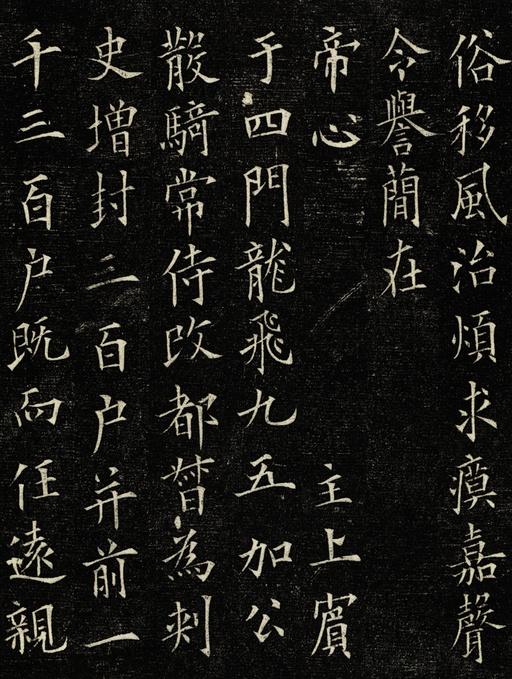 俗移風治煩求瘼嘉聲
令譽蕳在
帝心 主上賓
于四門龍飛九五加公
散騎常侍改都督為刺
史增封三百户并前一
千三百户既而任遠親